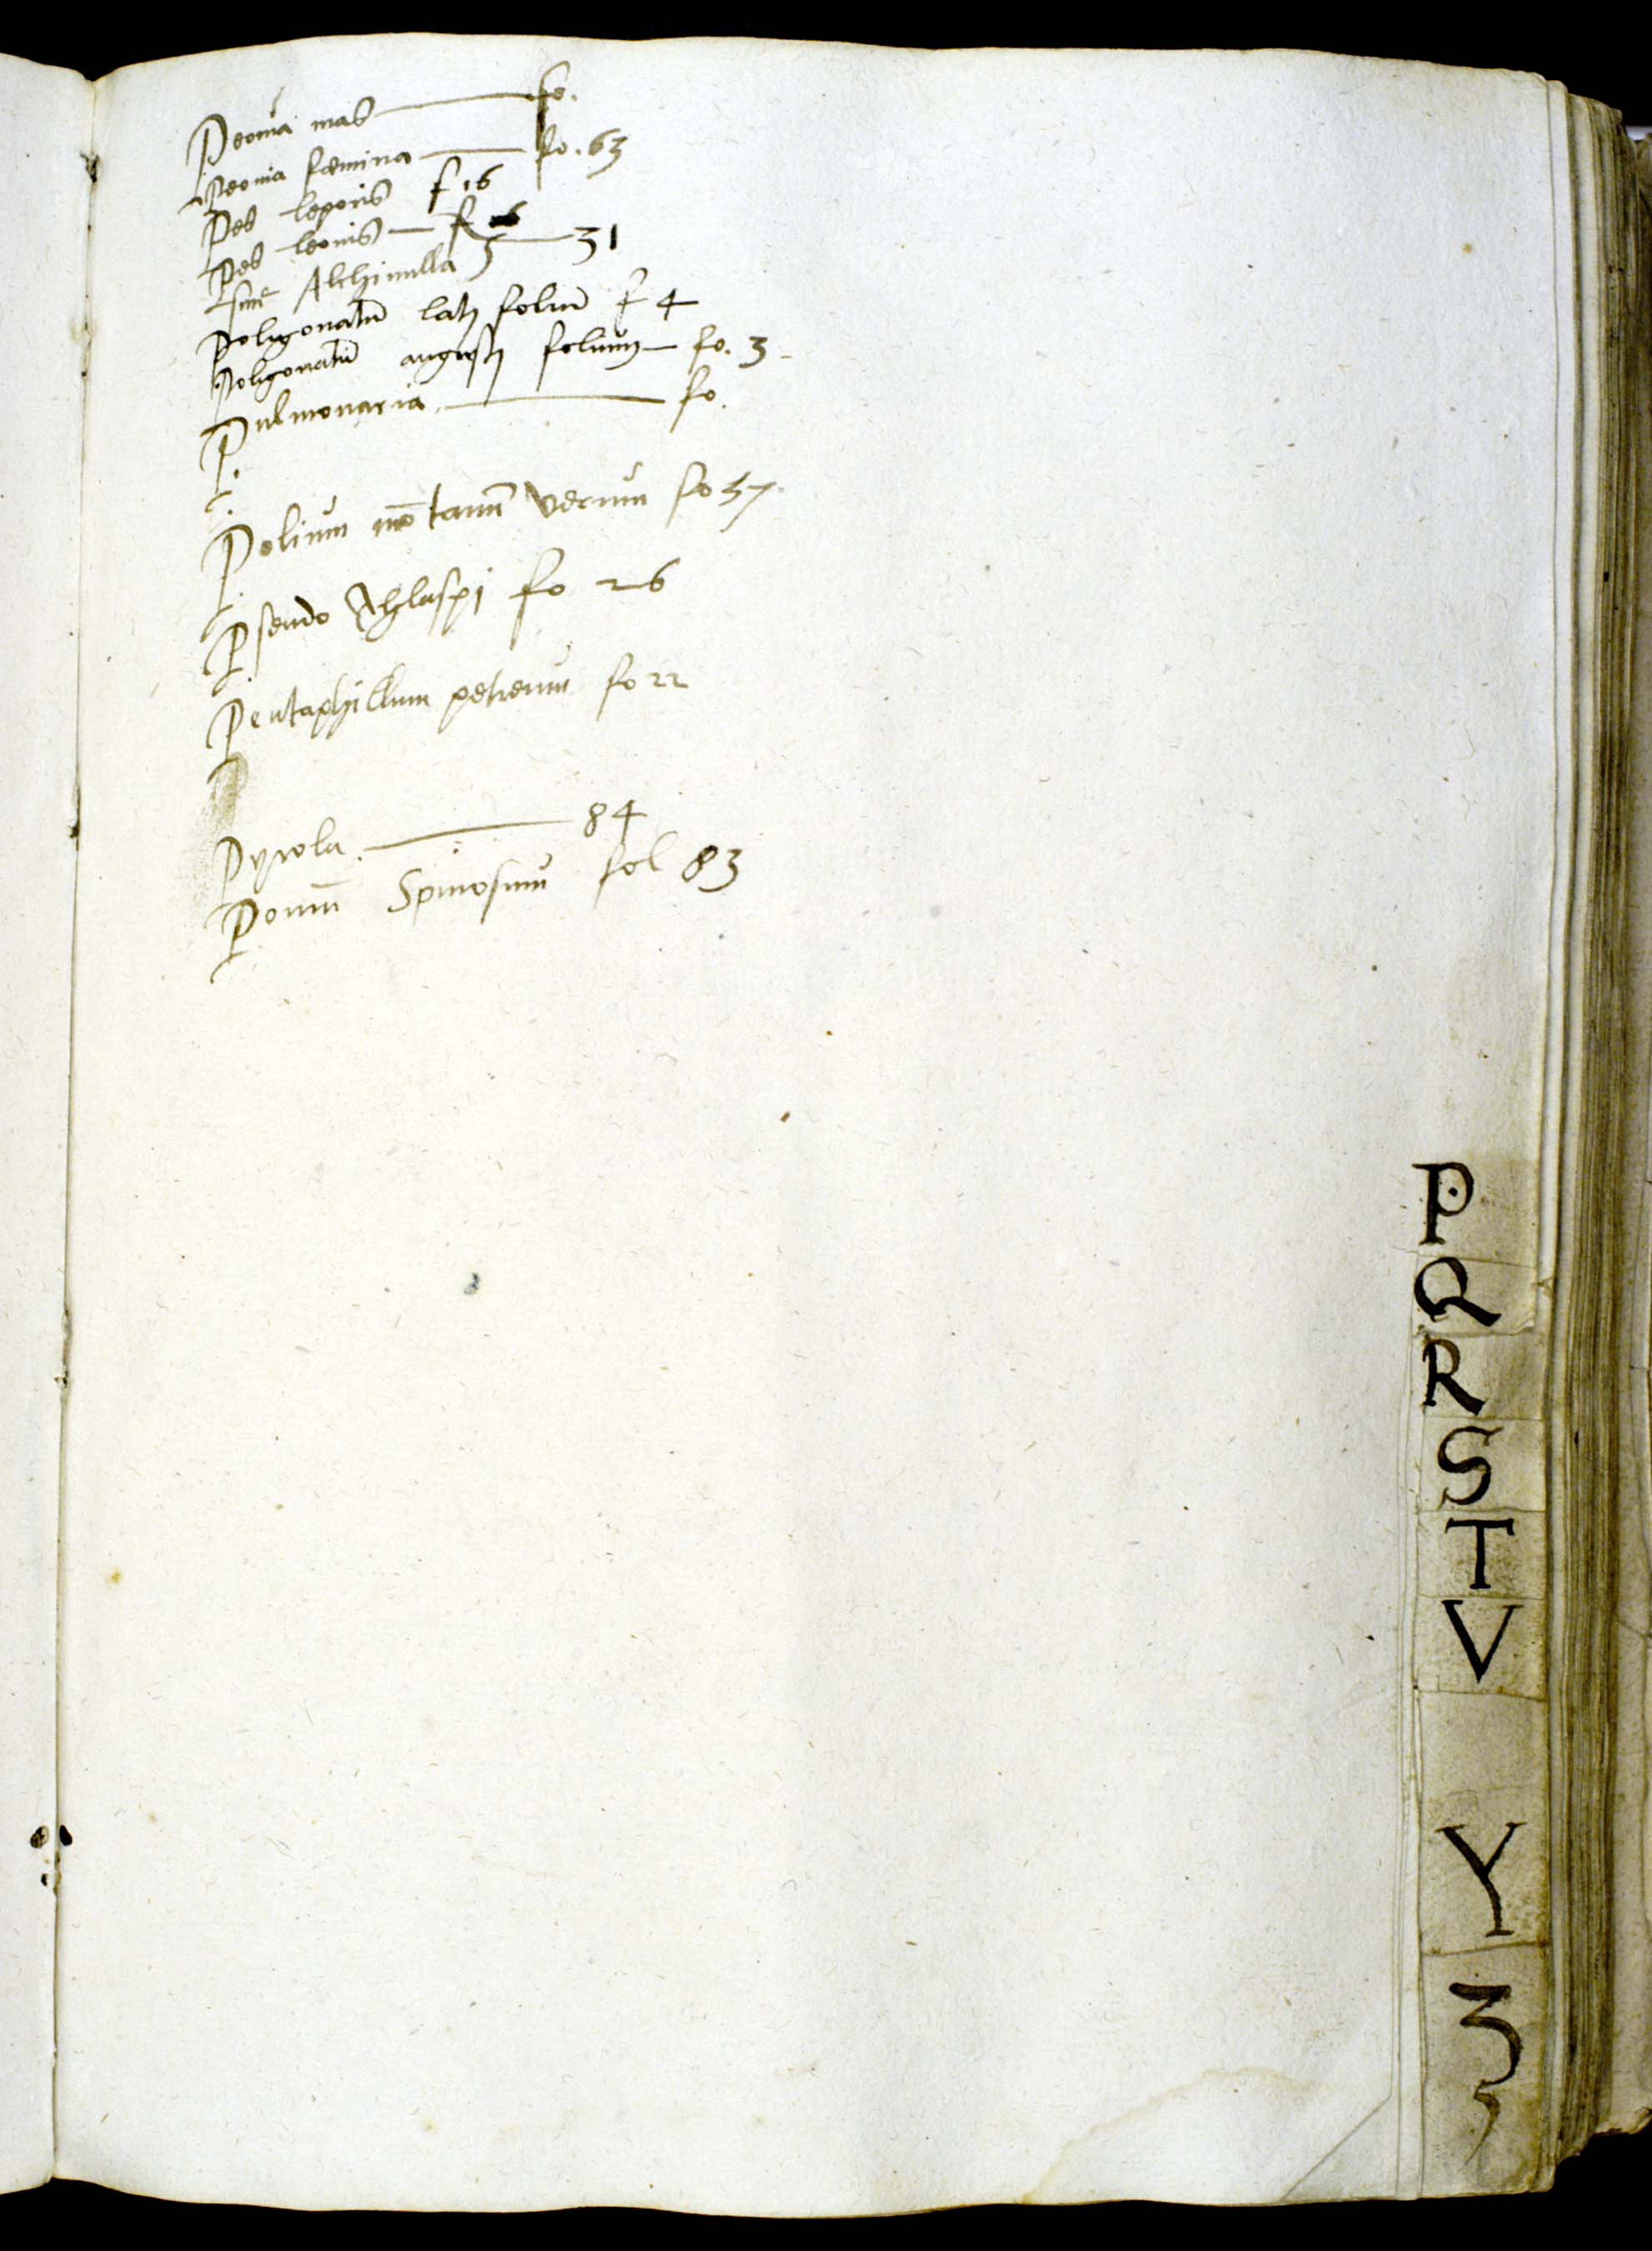 Peonia mas fo.
Peonia fæmina fo. 63
Pes leporis f 16
Pes leonis f
siue Alchimilla 31
Poligonatũ latj foliũ f 4
Poligonatũ angustj folium fo. 3
Pulmonaria fo.
Polium mõtanũ verum fo 57
Pseudo Thlaspj fo 26
Pentaphillum petreum fo 22
Pyrola 84
Pomũ Spinosum fol 83
P
Q
R
S
T
V
Y
Z